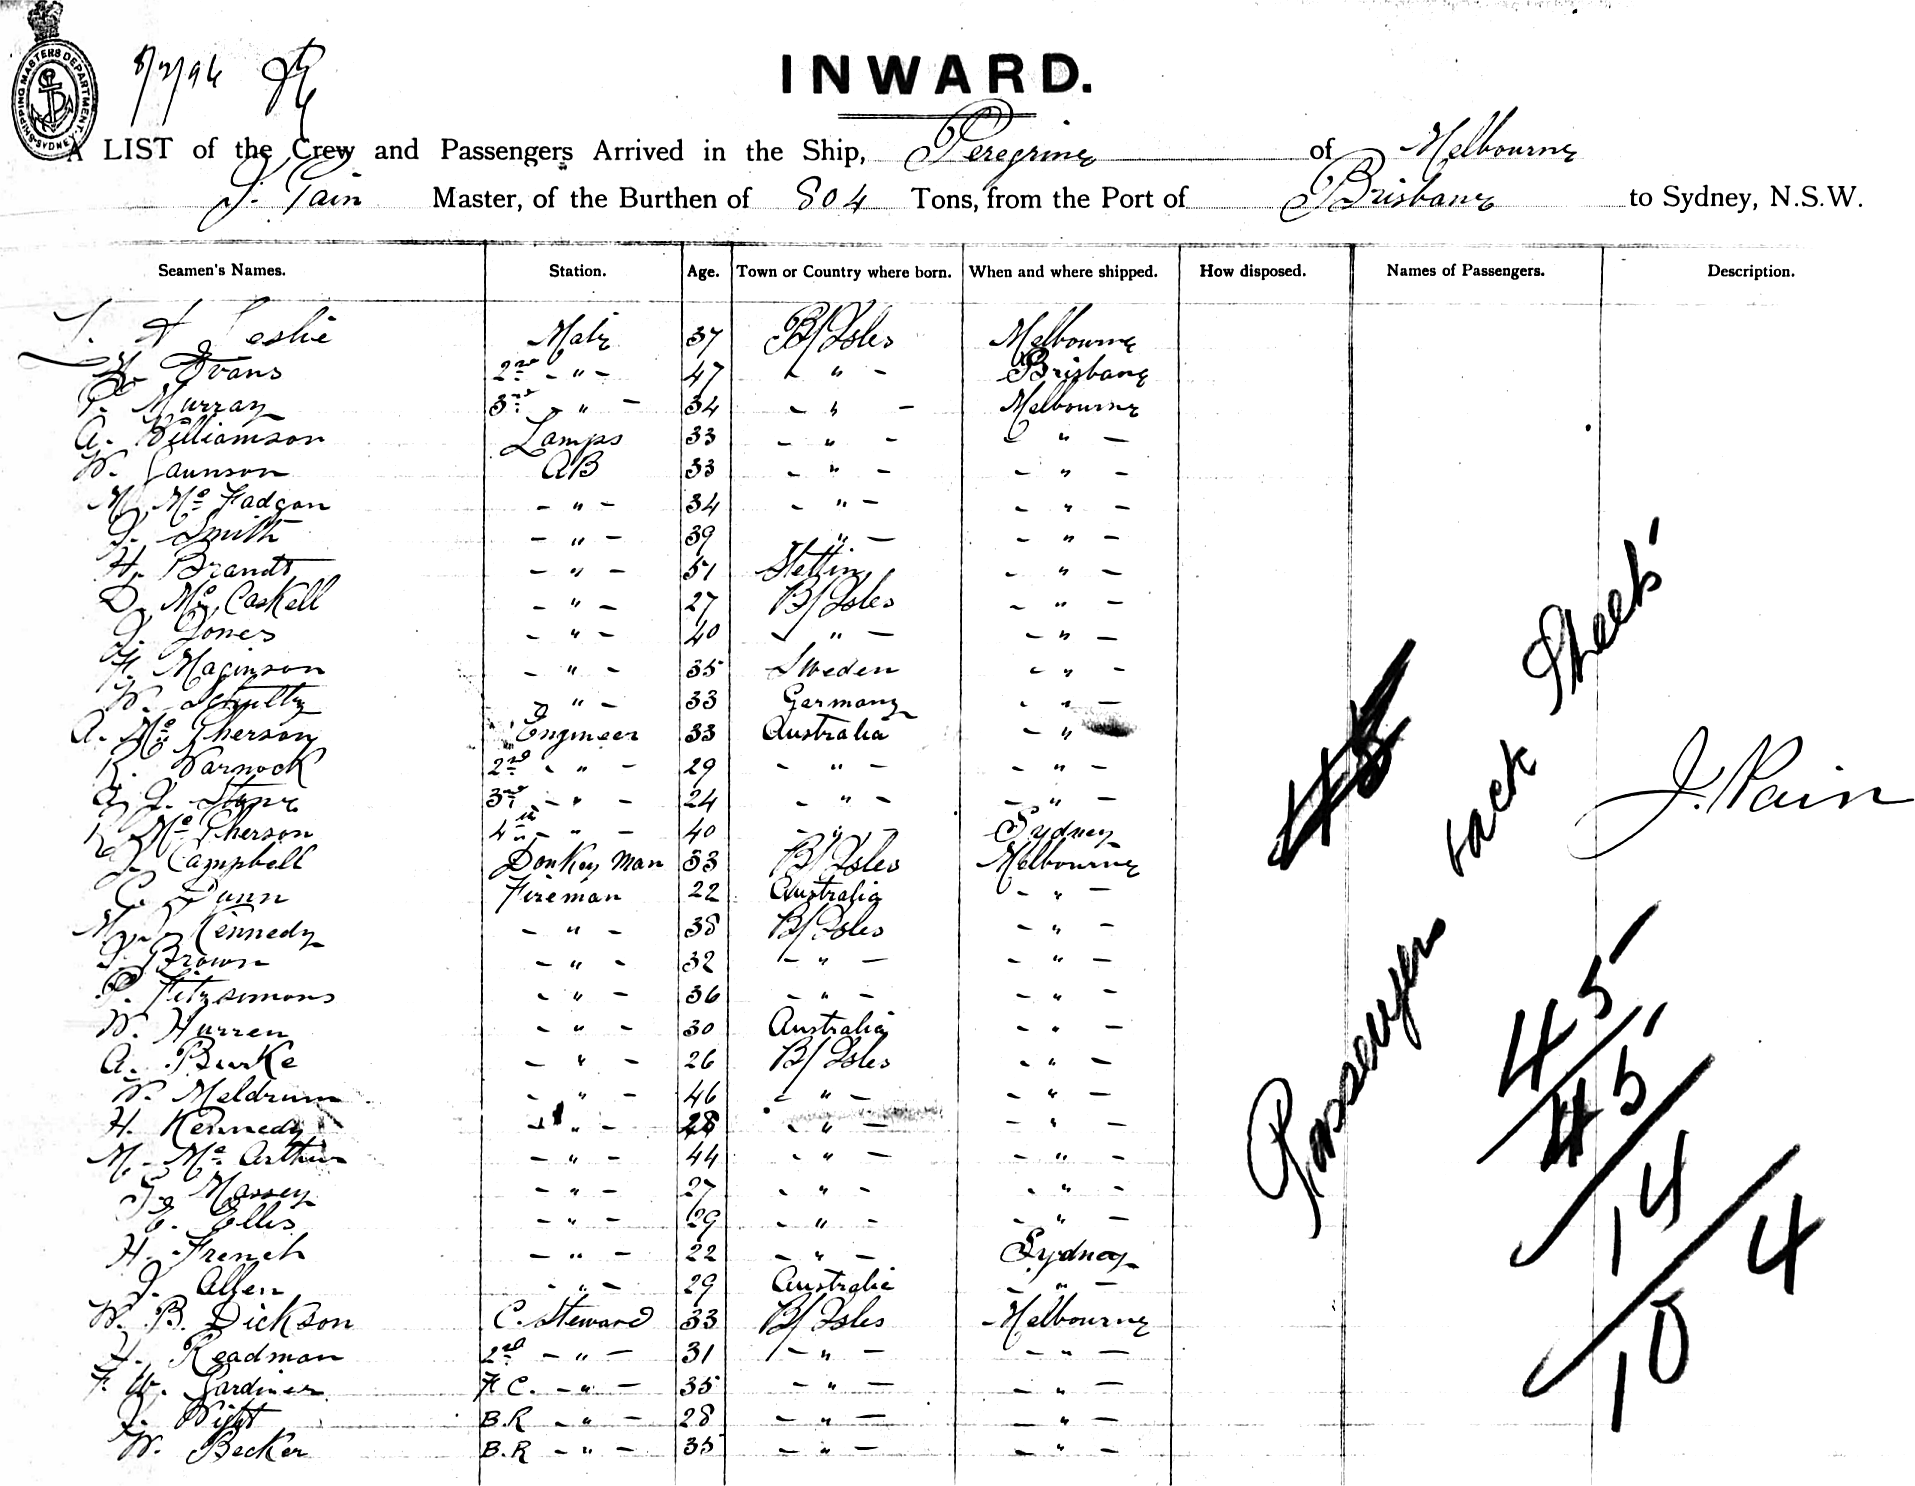 SHIPPING MASTERS DEPARTMENT. SYDNEY
8/2/96
INWARD.
A LIST of the Crew and Passengers Arrived in the Ship, Peregrine of Melbourne
J. Pain Master, of the Burthen of 804 Tons, from the Port of Brisbane to Sydney, N.S.W.
Seamen's Names. Station. Age. Town or Country where born. When and where shipped. How disposed. Names of Passengers. Description.
H Leslie Mate 37 B/Isles Melbourne
Evans 2nd - " - 47 - " - Brisbane
P. Murray 3rd - " - 34 - " - Melbourne
A. Williamson Lamps 33 - " - - " -
W. Jaunson AB 33 - " - - " -
M. McFadgon - " - 34 - " - - " -
J. Smith - " - 39 " - - " -
H. Brandt - " - 51 Stettin - " -
D. McCaskell - " - 27 B/Isles - " -
J. Jones - " - 40 - " - - " -
F. Maginson - " - 35 Sweden - " -
W. Schultz - " - 33 Germany - " -
A. McPherson Engineer 33 Australia - "
R. Warnock 2nd - " - 29 - " - - " -
3rd - " - 24 - " - - " -
R. McPherson 4th - " - 40 - " - Sydney
J. Campbell Donkey man 33 B/Isles Melbourne
C. Dunn Fireman 22 Australia - " -
M. J. Kennedy - " - 38 B/Isles - " -
J. Brown - " - 32 - " - - " -
P. Fitzsimons - " - 36 - " - - " -
W. Hurren - " - 30 Australia - " -
A. Burke - " - 26 B/Isles - " -
W. Meldrum - " - 46 - " - - " -
H. Kennedy - " - 28 - " - - " -
M. McArthur - " - 44 - " - - " -
Massey - " - 27 - " - - " -
E. Ellis - " - 29 - " - - " -
H. French - " - 22 - " - Sydney
J. Allen - " - 29 Australia - " -
W. B. Dickson C. Steward 33 B/Isles Melbourne
H. Readman 2nd - " - 31 - " - - " -
F. W. Gardiner F C. - " - 35 - " - - " -
J. Wight B.R - " - 28 - " - - " -
W. Becker B.R - " - 35 - " - - " -
Passenger back Sheet
J. Pain
45
45
14
10 4